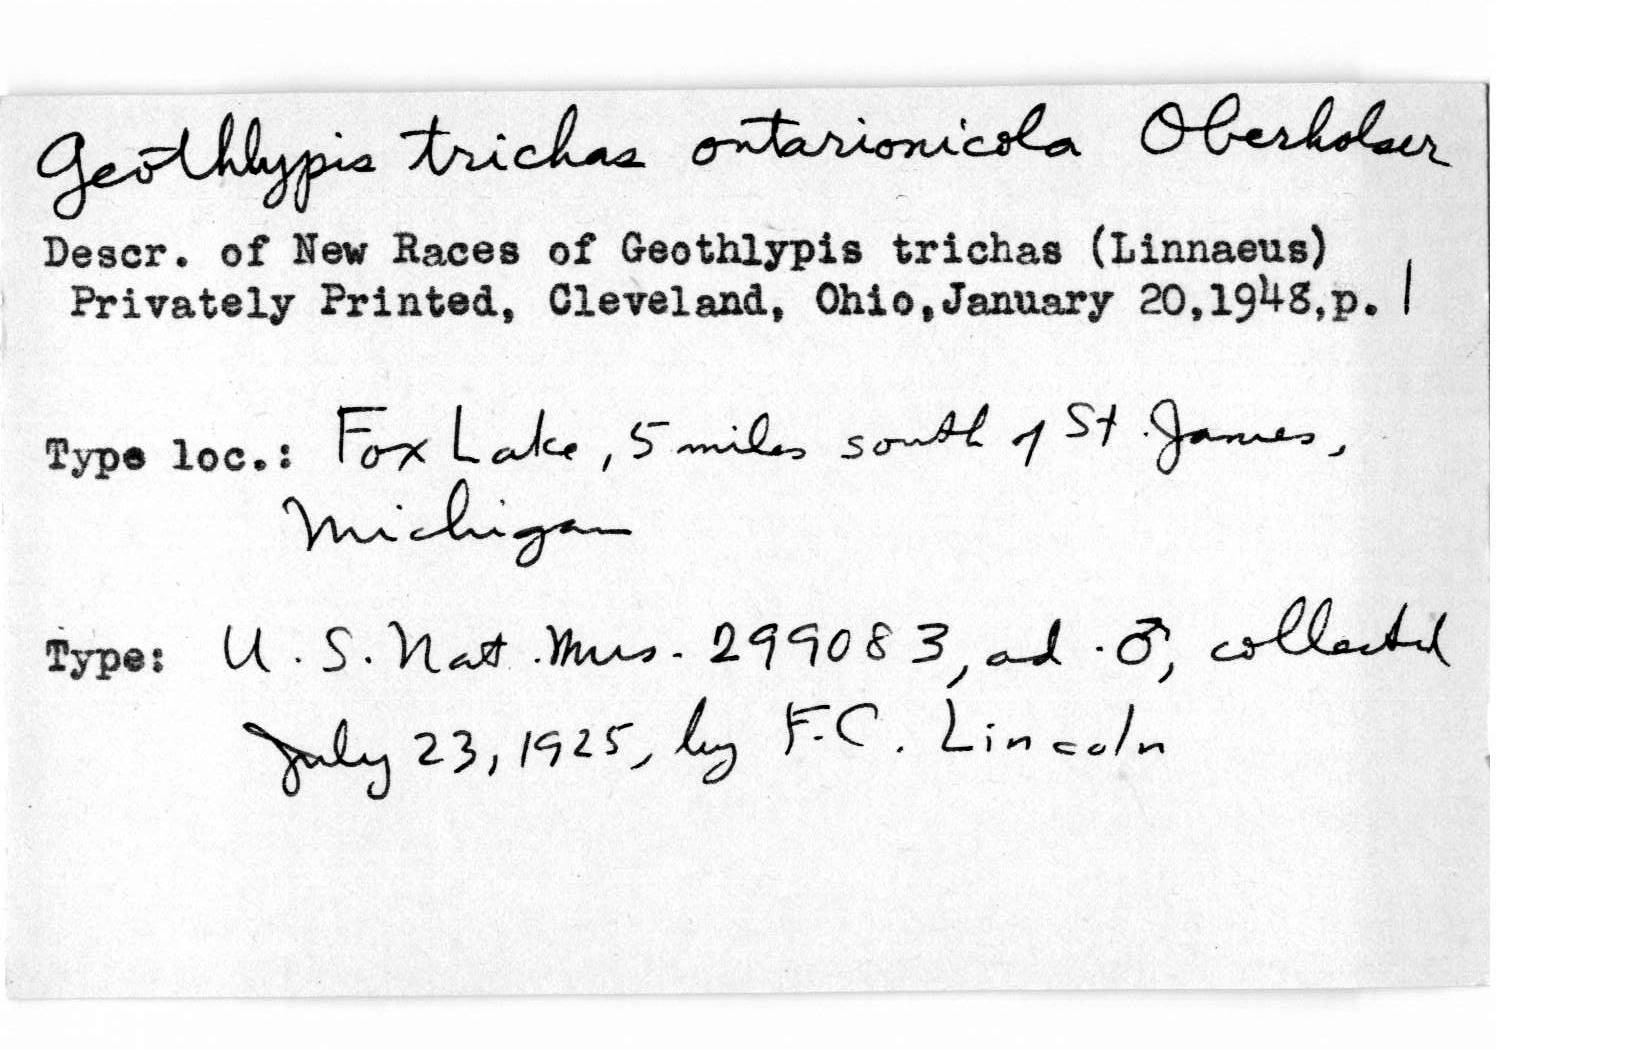 Geothlypis trichas ontarionicola Oberholser
Descr. of New Races of Geothlypis trichas (Linnaeus)
Privately Printed, Cleveland, Ohio,January 20,1948,p. 1
Type loc.: Fox Lake, 5 miles south of St. James,
Michigan
Type: U.S. Nat. Mus. 299083, ad. ♂, collected
July 23, 1925, by F.C. Lincoln